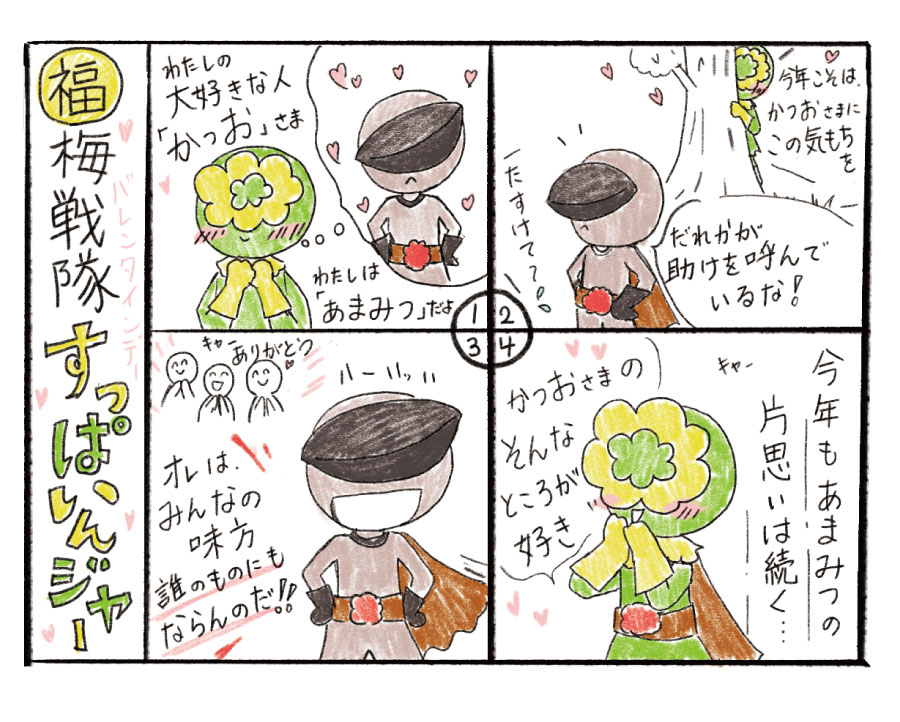 福
梅戦隊
すっぱいんジャー
バレンタインデー
わたしの
大好きな人
「かつお」さま
わたしは
「あまみつ」だよ
1
2
3
4
今年こそは、
かつおさまに
この気もちを
たすけて〜
だれかが
助けを呼んで
いるな!
キャー
ありがとう
ハーハッハ
オレは、
みんなの
味方
誰のものにも
ならんのだ!!
かつおさまの
そんな
ところが
好き
キャー
今年もあまみつの
片思いは続く…